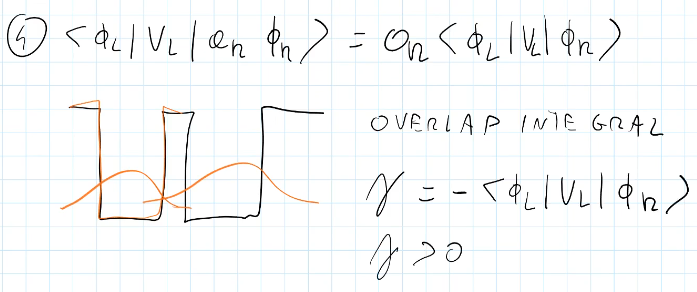 ④ <ϕL|VL|aR ϕR> = aR<ϕL|VL|ϕR>
OVERLAP INTEGRAL
γ = -<ϕL|VL|ϕR>
γ > 0